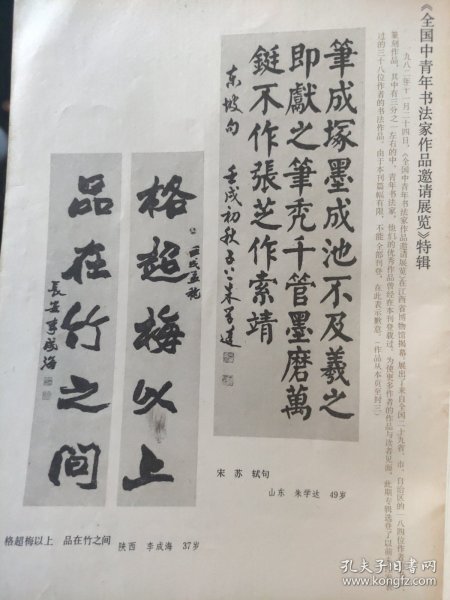 《全国中青年书法家作品邀请展览》特辑
一九八二年十一月二十四日，《全国中青年书法家作品邀请展览》在江西省博物馆揭幕，展出了来自全国二十九省、市、自治区的一八四位作者
篆刻作品，其中有三分之一左右的中、青年书法家，他们的优秀作品曾经在本刊登载过。为使更多作者的作品与读者见面，此期专辑选登了以前
过的三十八位作者的书法作品。由于本刊篇幅有限，不能全部刊登，在此表示歉意。（作品从本页至封三）
筆成塚墨成池不及羲之
即獻之筆秃千管墨磨萬
鋌不作張芝作索靖
東坡句
壬戌初秋
格超梅以上
品在竹之间
長安李成海
宋 苏 轼句
山东 朱学达 49岁
格超梅以上 品在竹之间
陕西 李成海 37岁
孔夫子旧书网